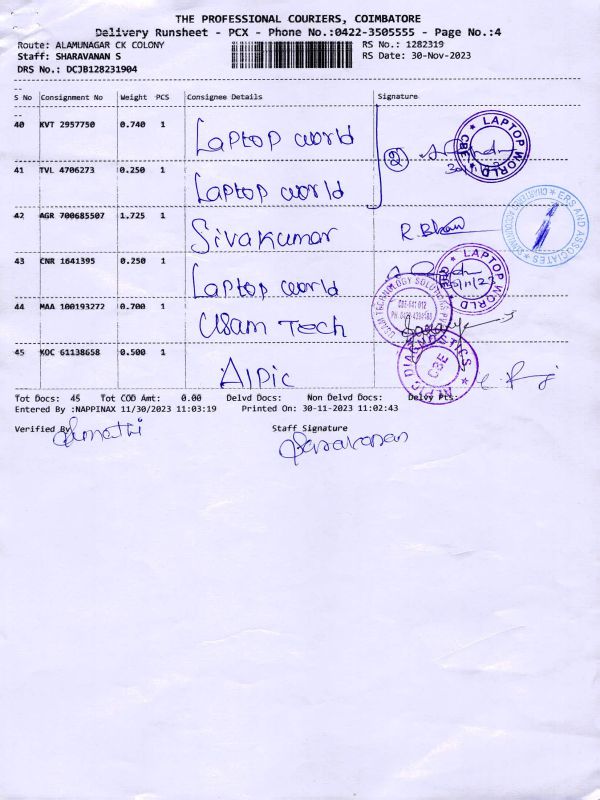 THE PROFESSIONAL COURIERS, COIMBATORE
Delivery Runsheet - PCX - Phone No.:0422-3505555 - Page No.:4
Route: ALAMUNAGAR CK COLONY RS No.: 1282319
Staff: SHARAVANAN S RS Date: 30-Nov-2023
DRS No.: DCJB128231904
S No Consignment No Weight PCS Consignee Details Signature
40 KVT 2957750 0.740 1 Laptop world
LAPTOP WORLD CBE
2
41 TVL 4706273 0.250 1 Laptop world
42 AGR 700685507 1.725 1 Sivakumar
ERS AND ASSOCIATES
43 CNR 1641395 0.250 1 Laptop world
LAPTOP WORLD
44 MAA 100193272 0.700 1 Usam Tech
45 KOC 61138658 0.500 1 Alpic
ALPIC DIAGNOSTICS CBE
Tot Docs: 45 Tot COD Amt: 0.00 Delvd Docs: Non Delvd Docs: Delvy Pts:
Entered By :NAPPINAX 11/30/2023 11:03:19 Printed On: 30-11-2023 11:02:43
Verified By Staff Signature